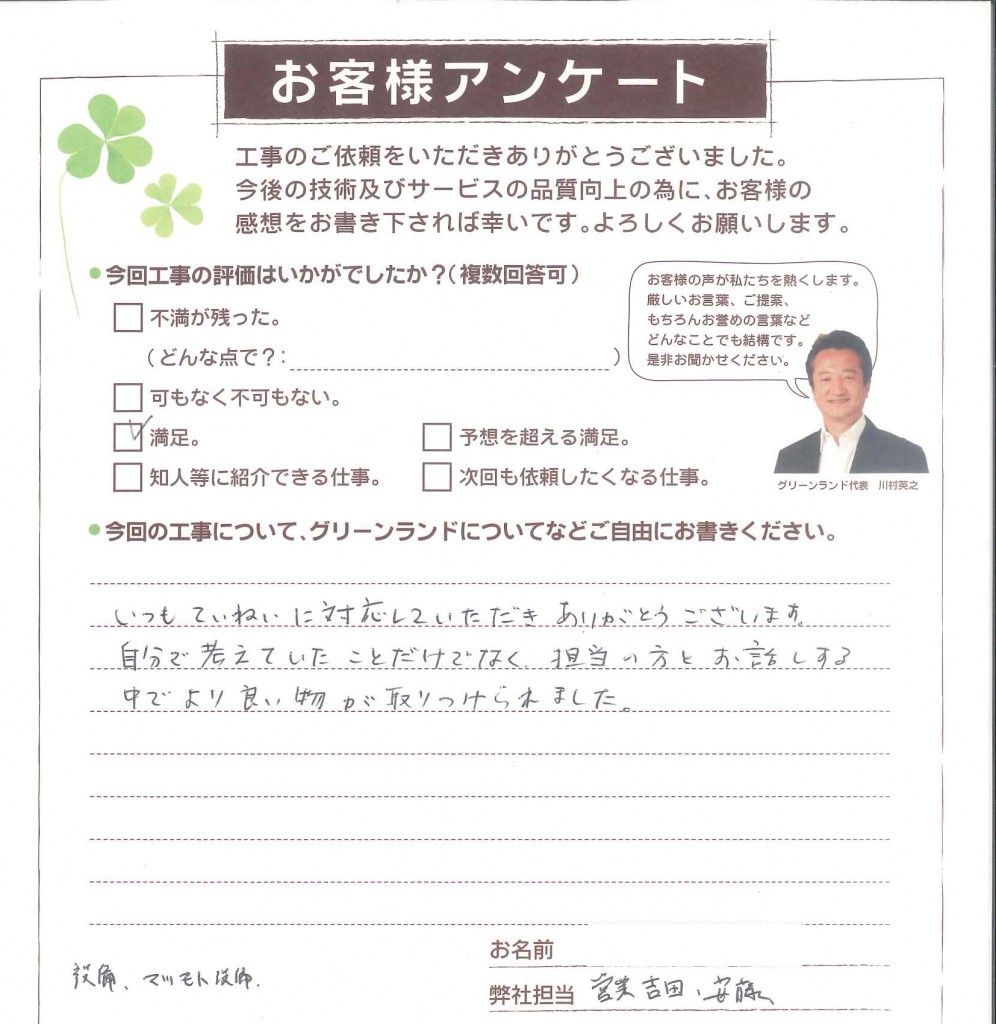 お客様アンケート
工事のご依頼をいただきありがとうございました。
今後の技術及びサービスの品質向上の為に、お客様の
感想をお書き下されば幸いです。よろしくお願いします。
●今回工事の評価はいかがでしたか？（複数回答可）
不満が残った。
（どんな点で？：　）
可もなく不可もない。
満足。
予想を超える満足。
知人等に紹介できる仕事。
次回も依頼したくなる仕事。
お客様の声が私たちを熱くします。
厳しいお言葉、ご提案、
もちろんお誉めの言葉など
どんなことでも結構です。
是非お聞かせください。
グリーンランド代表　川村英之
●今回の工事について、グリーンランドについてなどご自由にお書きください。
いつもていねいに対応していただきありがとうございます。
自分で考えていたことだけでなく、担当の方とお話しする
中でより良い物が取りつけられました。
お名前
設備、マツモト設備.
弊社担当 営業吉田、安藤